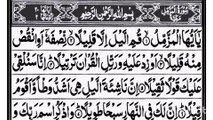 بِسْمِ اللّٰهِ الرَّحْمٰنِ الرَّحِيْمِ
يٰۤاَيُّهَا الْمُزَّمِّلُ قُمِ الَّيْلَ اِلَّا قَلِيْلًا نِّصْفَهٗۤ اَوِ انْقُصْ
مِنْهُ قَلِيْلًا اَوْ زِدْ عَلَيْهِ وَرَتِّلِ الْقُرْاٰنَ تَرْتِيْلًا اِنَّا سَنُلْقِيْ
عَلَيْكَ قَوْلًا ثَقِيْلًا اِنَّ نَاشِئَةَ الَّيْلِ هِيَ اَشَدُّ وَطْاً وَّاَقْوَمُ
قِيْلًا اِنَّ لَكَ فِي النَّهَارِ سَبْحًا طَوِيْلًا وَاذْكُرِ اسْمَ رَبِّكَ وَ